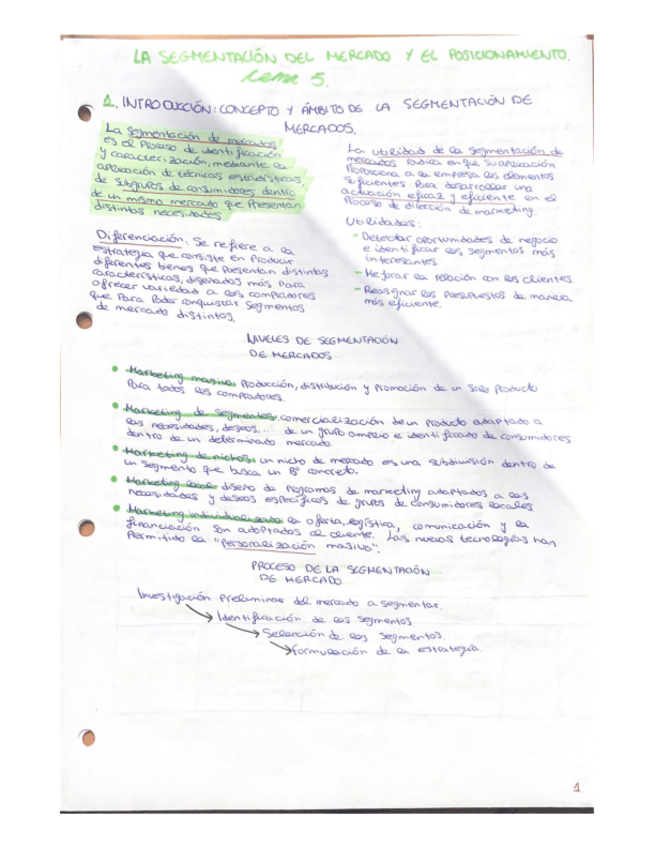 LA SEGMENTACIÓN DEL MERCADO Y EL POSICIONAMIENTO.
tema 5.
1. INTRODUCCIÓN: CONCEPTO Y ÁMBITO DE LA SEGMENTACIÓN DE
MERCADOS.
La segmentación de mercados
es el Proceso de identificación
y caracterización, mediante la
aplicación de técnicas estadísticas,
de subgrupos de consumidores dentro
de un mismo mercado que Presentan
distintas necesidades
Diferenciación: Se refiere a la
estrategia que consiste en Producir
diferentes bienes que presentan distintas
características, diseñados más Para
ofrecer variedad a los compradores
que Para Poder conquistar segmentos
de mercado distintos.
La utilidad de la segmentación de
mercados radica en que su aplicación
Proporciona a la empresa los elementos
suficientes Para desarrollar una
actuación eficaz y eficiente en el
Proceso de dirección de marketing.
Utilidades:
- Detectar oportunidades de negocio
e identificar los segmentos más
interesantes
- Mejorar la relación con los clientes
- Reasignar los Presupuestos de manera
más eficiente.
NIVELES DE SEGMENTACIÓN
DE MERCADOS
• Marketing masivo: Producción, distribución y Promoción de un solo Producto
Para todos los compradores.
• Marketing de segmentos: comercialización de un Producto adaptado a
las necesidades, deseos,... de un grupo amplio e identificado de consumidores
dentro de un determinado mercado.
• Marketing de nichos: un nicho de mercado es una subdivisión dentro de
un segmento que busca un Bº concreto.
• Marketing local: diseño de Programas de marketing adaptados a las
necesidades y deseos específicos de grupos de consumidores locales
• Marketing individualizado: la oferta, logística, comunicación y la
financiación son adaptados al cliente. Las nuevas tecnologías han
Permitido la "Personalización masiva".
PROCESO DE LA SEGMENTACIÓN
DE MERCADO
Investigación Preliminar del mercado a segmentar.
Identificación de los segmentos
Selección de los segmentos.
Formulación de la estrategia.
1